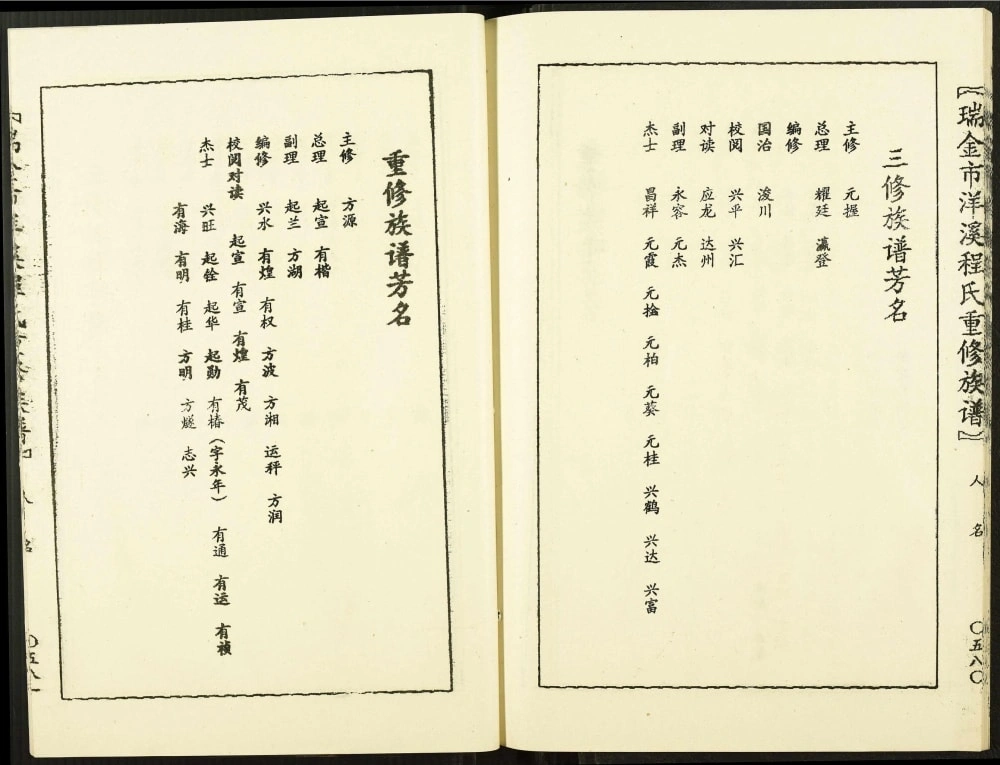 〖瑞金市洋溪程氏重修族谱〗 人名 〇五八〇
三修族谱芳名
主修 元握
总理 耀廷 瀛登
编修
国治 浚川
校阅 兴平 兴汇
对读 应龙 达州
副理 永容 元杰
杰士 昌祥 元霞 元捡 元柏 元葵 元桂 兴鹤 兴达 兴富
重修族谱芳名
主修 方源
总理 起宣 有楷
副理 起兰 方湖
编修 兴水 有煌 有权 方波 方湘 运秤 方润
校阅对读 起宣 有宣 有煌 有茂
杰士 兴旺 起铨 起华 起勋 有椿(字永年) 有通 有运 有祯
有海 有明 有桂 方明 方燧 志兴